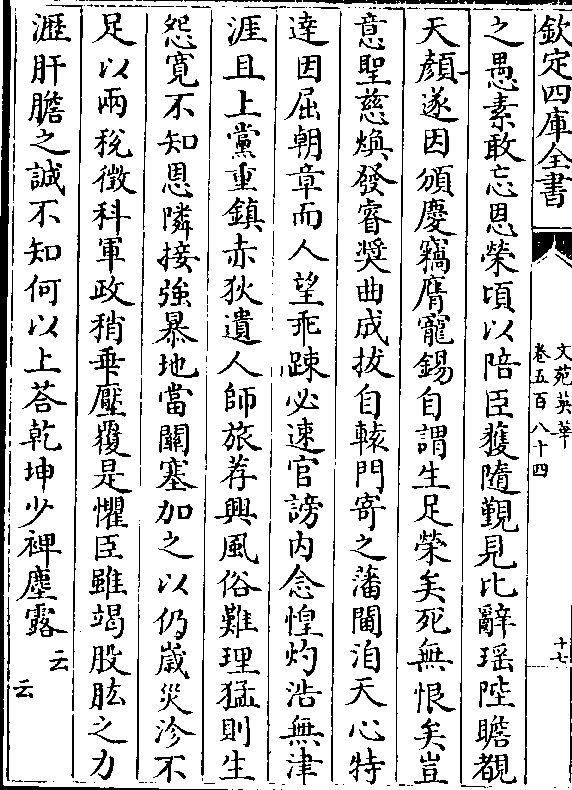 欽定四庫全書
文苑英華
卷五百八十四
十七
之愚素敢忘恩榮頃以陪臣獲隨覲見比辭瑶陛瞻覩
天顔遂因頒慶竊膺寵錫自謂生足榮矣死無恨矣豈
意聖慈煥發睿奬曲成拔自轅門寄之藩閫洎天心特
逹因屈朝章而人望乖踈必速官謗内念惶灼浩無津
涯且上黨重鎮赤狄遺人師旅荐興風俗難理猛則生
怨寛不知恩隣接強暴地當關塞加之以仍歳災沴不
足以兩稅徴科軍政稍乖壓覆是懼臣雖竭股肱之力
瀝肝膽之誠不知何以上荅乾坤少裨塵露云
云